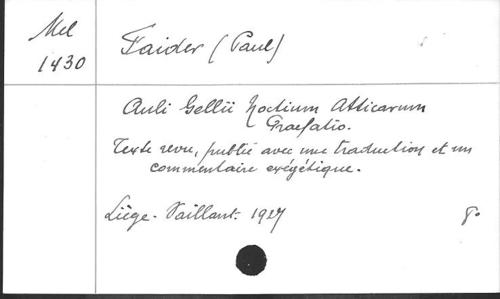 Mel
1430
Faider (Paul)
Auli Gellii Noctium Atticarum
Praefatio.
Texte revu, publié avec une traduction et un
commentaire exégétique.
Liège. Vaillant. 1927
8°